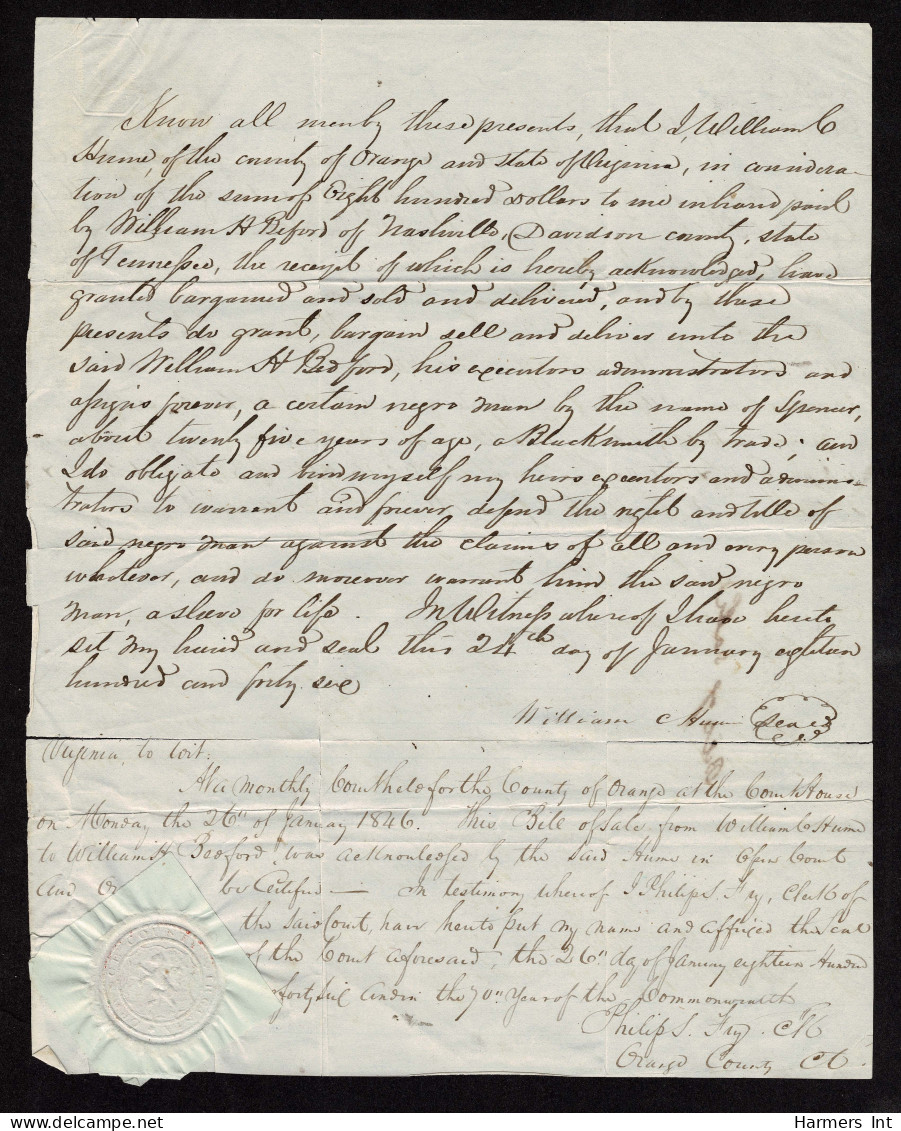 Know all men by these presents, that I, William C
Hume, of the county of Orange and state of Virginia, in considera-
tion of the sum of Eight hundred Dollars to me in hand paid
by William H Beford of Nashville, Davidson county, state
of Tennessee, the receipt of which is hereby acknowledged, have
granted bargained and sold and delivered, and by these
presents do grant, bargain sell and deliver unto the
said William H Bedford, his executors administrators and
assigns forever, a certain negro man by the name of Spencer,
about twenty five years of age, a Blacksmith by trade; and
I do obligate and bind myself my heirs executors and adminis-
trators to warrant and forever defend the right and title of
said negro man against the claims of all and every person
whatever, and do moreover warrant him the said negro
man, a slave for life. In Witness whereof I have hereto
set my hand and seal this 24th day of January eighteen
hundred and forty six
William C Hume Seal
Virginia, to wit:
At a monthly Court held for the County of Orange at the Court House
on Monday the 26th of January 1846. This Bill of Sale, from William C Hume
to William H. Bedford, was acknowledged by the said Hume in Open Court
and Or be Certified — In testimony whereof I Philip S. Fry, Clerk of
the said Court, have hereto put my name and affixed the seal
of the Court aforesaid, the 26th day of January eighteen Hundred
forty six and in the 70th Year of the Commonwealth
Philip S. Fry. Clk
Orange County Ct.
Harmers Int